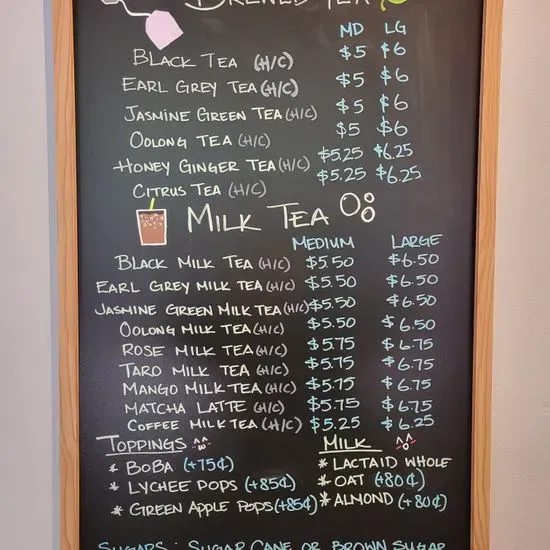 BREWED TEA
MD LG
BLACK TEA (H/C) $5 $6
EARL GREY TEA (H/C) $5 $6
JASMINE GREEN TEA (H/C) $5 $6
OOLONG TEA (H/C) $5 $6
HONEY GINGER TEA (H/C) $5.25 $6.25
CITRUS TEA (H/C) $5.25 $6.25
MILK TEA
MEDIUM LARGE
BLACK MILK TEA (H/C) $5.50 $6.50
EARL GREY MILK TEA (H/C) $5.50 $6.50
JASMINE GREEN MILK TEA (H/C) $5.50 $6.50
OOLONG MILK TEA (H/C) $5.50 $6.50
ROSE MILK TEA (H/C) $5.75 $6.75
TARO MILK TEA (H/C) $5.75 $6.75
MANGO MILK TEA (H/C) $5.75 $6.75
MATCHA LATTE (H/C) $5.75 $675
COFFEE MILK TEA (H/C) $5.25 $6.25
TOPPINGS MILK
* BOBA (+75¢) * LACTAID WHOLE
* LYCHEE POPS (+85¢) * OAT (+80¢)
* GREEN APPLE POPS (+85¢) * ALMOND (+80¢)
SUGARS: SUGAR CANE OR BROWN SUGAR